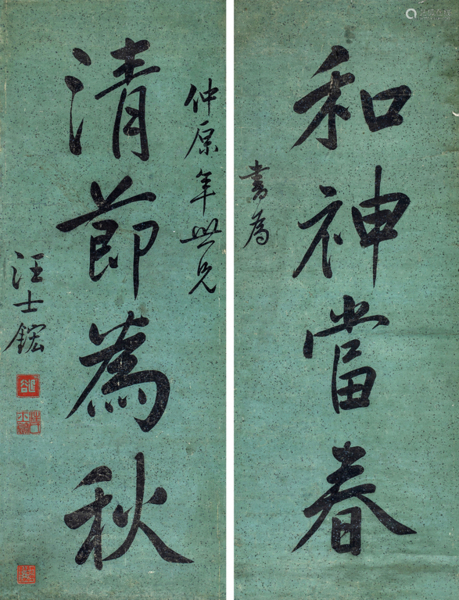 和神當春
書為
仲原年世兄
清節為秋
汪士鋐